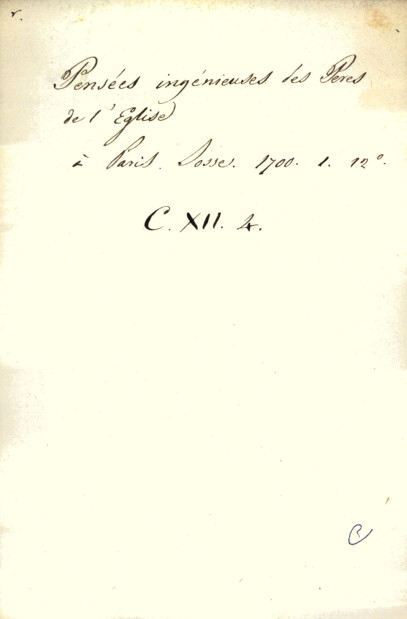 r.
Pensées ingénieuses des Peres
de l'Eglise
à Paris. Josse. 1700. 1. 12°.
C. XII. 4.